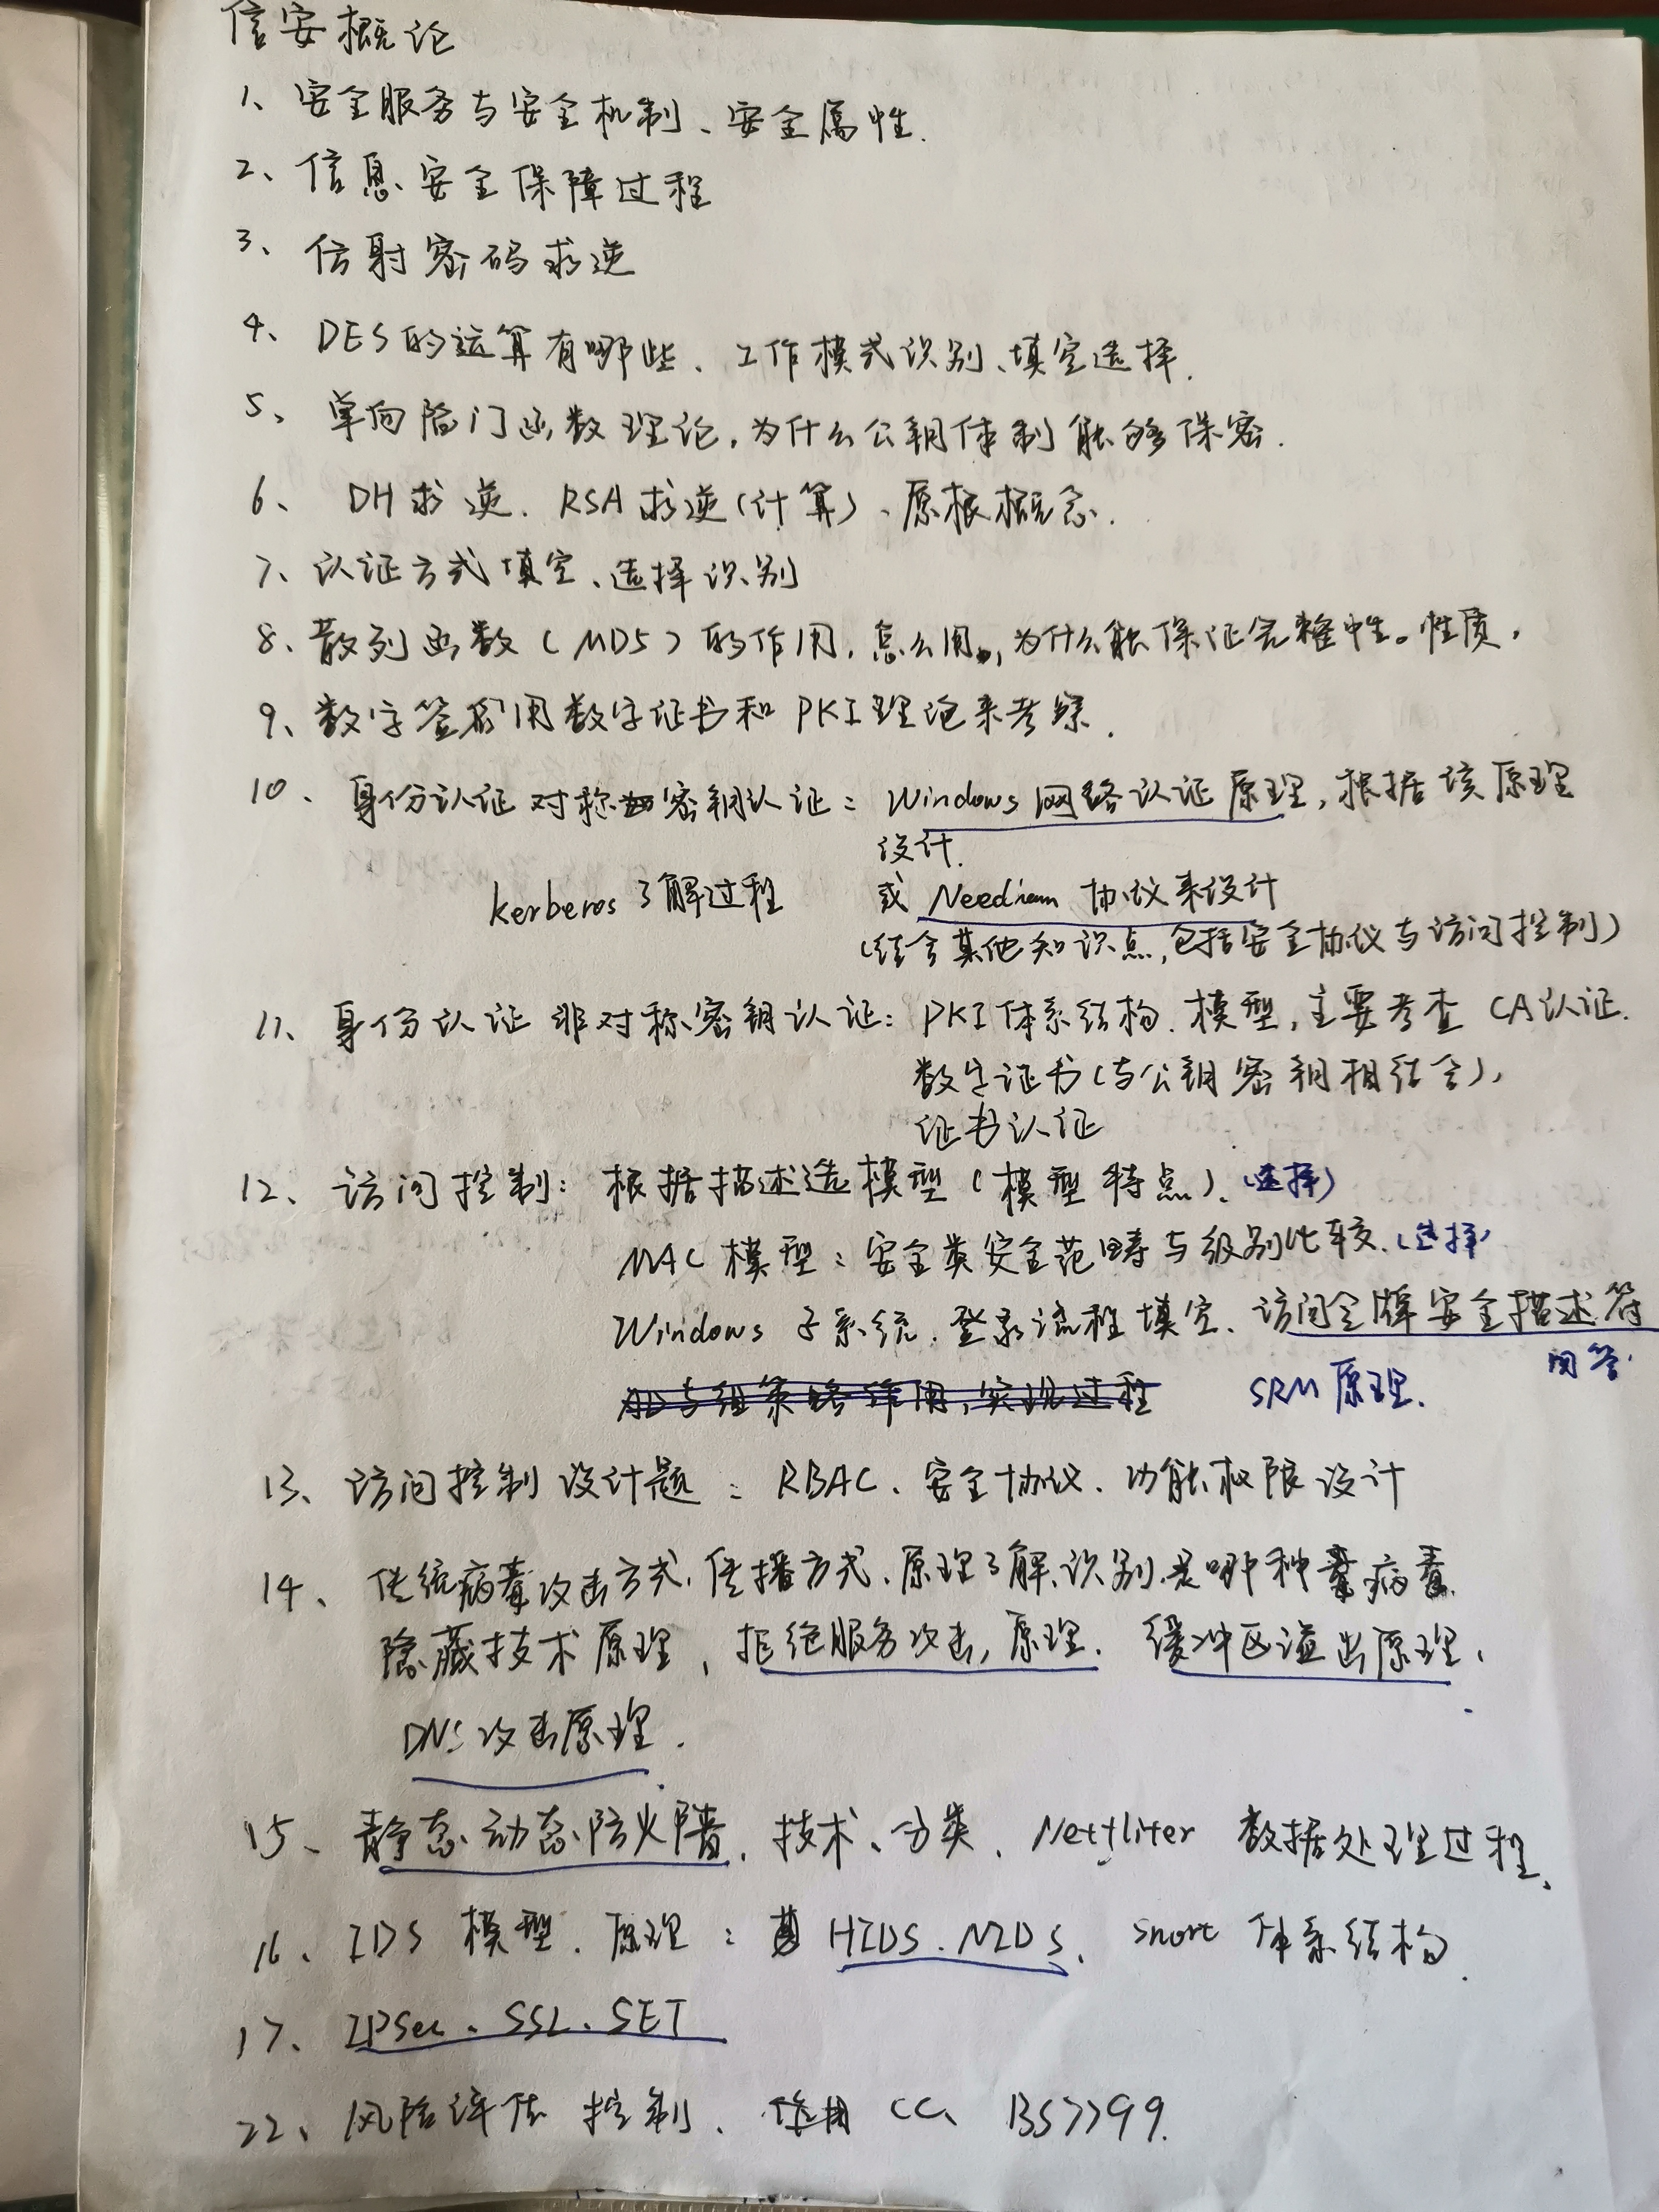 信安概论
1、安全服务与安全机制、安全属性.
2、信息安全保障过程
3、仿射密码求逆
4、DES的运算有哪些、工作模式识别、填空选择.
5、单向陷门函数理论,为什么公钥体制能够保密.
6、DH求逆.RSA求逆(计算)、原根概念.
7、认证方式填空、选择识别
8、散列函数(MD5)的作用,怎么用,为什么能保证完整性。性质,
9、数字签名用数字证书和PKI理论来考察.
10、身份认证对称密钥认证: Windows网络认证原理,根据该原理
设计.
Kerberos了解过程 或 Needham 协议来设计
(结合其他知识点,包括安全协议与访问控制)
11、身份认证非对称密钥认证: PKI体系结构.模型,主要考查CA认证.
数字证书(与公钥密钥相结合),
证书认证
12、访问控制: 根据描述选模型(模型特点).(选择)
MAC模型:安全类安全范畴与级别比较.(选择)
Windows子系统.登录流程填空、访问令牌安全描述符
问答.
AD与组策略作用,实现过程 SRM原理.
13、访问控制设计题: RBAC、安全协议、功能权限设计
14、传统病毒攻击方式,传播方式、原理了解,识别是哪种病毒
隐藏技术原理,拒绝服务攻击,原理.缓冲区溢出原理,
DNS攻击原理.
15、静态动态防火墙.技术、分类、Netfliter 数据处理过程、
16、IDS 模型.原理: HIDS.NIDS、snort 体系结构.
17、IPSec、SSL、SET
22、风险评估 控制、 CC、 BS7799.